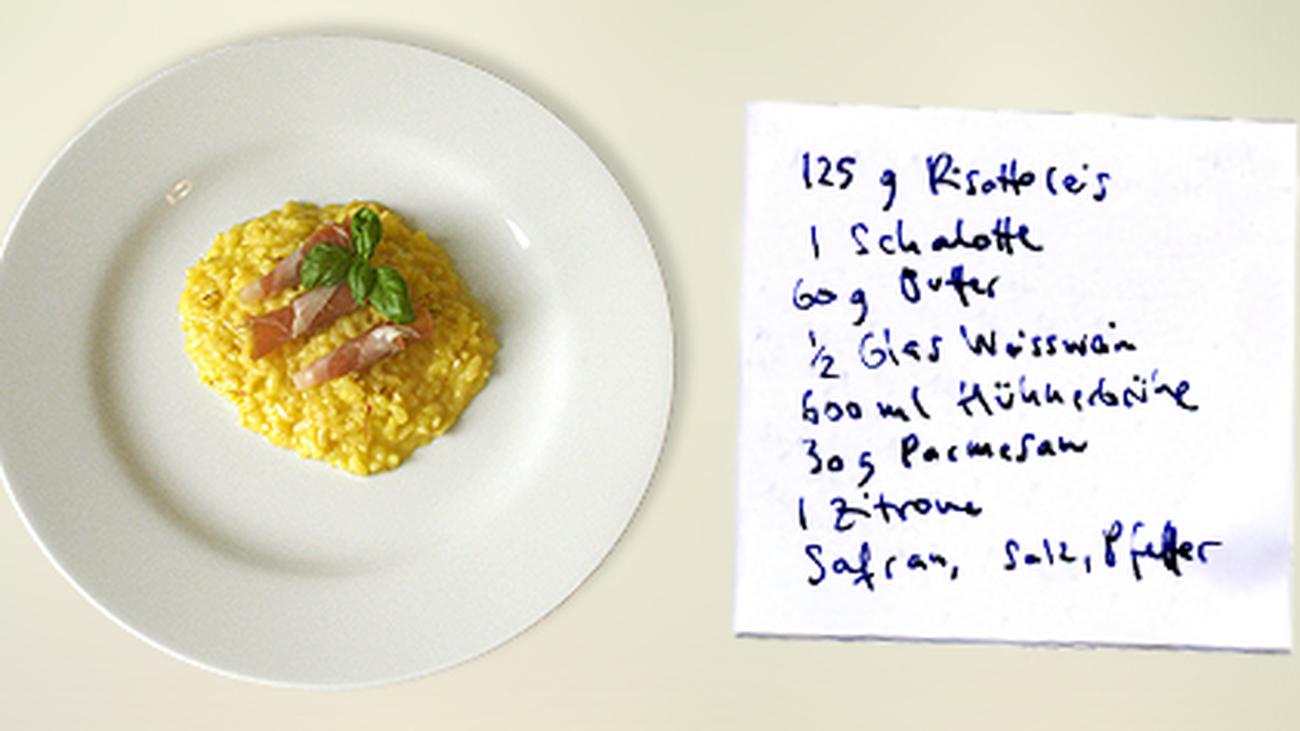 125 g Risottoreis
1 Schalotte
60 g Butter
1/2 Glas Weisswein
600 ml Hühnerbrühe
30 g Parmesan
1 Zitrone
Safran, Salz, Pfeffer